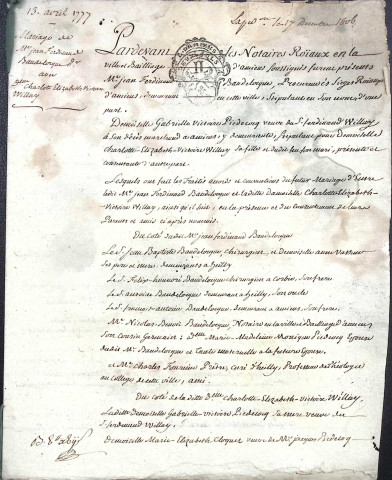 13. avril 1777
Mariage de
Mr. jean ferdinand
Baudelocque Pr.
avec
Charlotte Elizabeth Victoire
Willay
Pardevant les Notaires Roiaux en la
ville et Bailliage d'amiens soussignés furent présents
Mr. jean Ferdinand Baudelocque, Procureur és Sieges Roiaux
d'amiens, demeurant en cette ville, stipulant en son nom d'une
part.
Demoiselle Gabrielle victoire Piedecoq veuve du Sr. ferdinand Willay
à son décès marchand à amiens, y demeurante, stipulante pour Demoiselle
Charlotte-Elizabeth-Victoire Willay sa fille et dudit feu son mari, présente et
consentante d'autre part.
Lesquels ont fait les Traités accords et conventions du futur Mariage d'Entre
ledit Mr. jean Ferdinand Baudelocque et laditte Demoiselle Charlotte Elizabeth-
Victoire Willay, ainsi qu'il suit, en la présence et du Consentement de leurs
Parents et amis ci après nommés.
Du coté dudit Mr. jean ferdinand Baudelocque
Le Sr. jean Baptiste Baudelocque, chirurgien, et demoiselle anne
ses pere et mere, demeurants à heilly
Le Sr. Felix honnoré Baudelocque chirurgien à corbie, son frere
Le Sr. antoine Baudelocque demeurant à heilly, son oncle
Le Sr. françois-antoine Baudelocque, demeurant à amiens, son frere.
Mr. Nicolas-Benoit Baudelocque Notaire en la ville et Bailliage d'amiens
son Cousin Germain; Dme. Marie-Madeleine Monique Piedecoq Epouse
dudit Mr. Baudelocque et Tante maternelle à la future Epouse.
et Mr. Charles Prêtre, curé d'heilly, Professeur de Théologie
au College de cette ville, ami.
Du coté de la ditte Dlle. Charlotte-Elizabeth-victoire Willay,
Laditte Demoiselle Gabrielle-victoire Piedecoq sa mere veuve du
Sr. ferdinand Willay.
Demoiselle Marie-Elizabeth Cloquet veuve de Mr. jacques Piedecoq